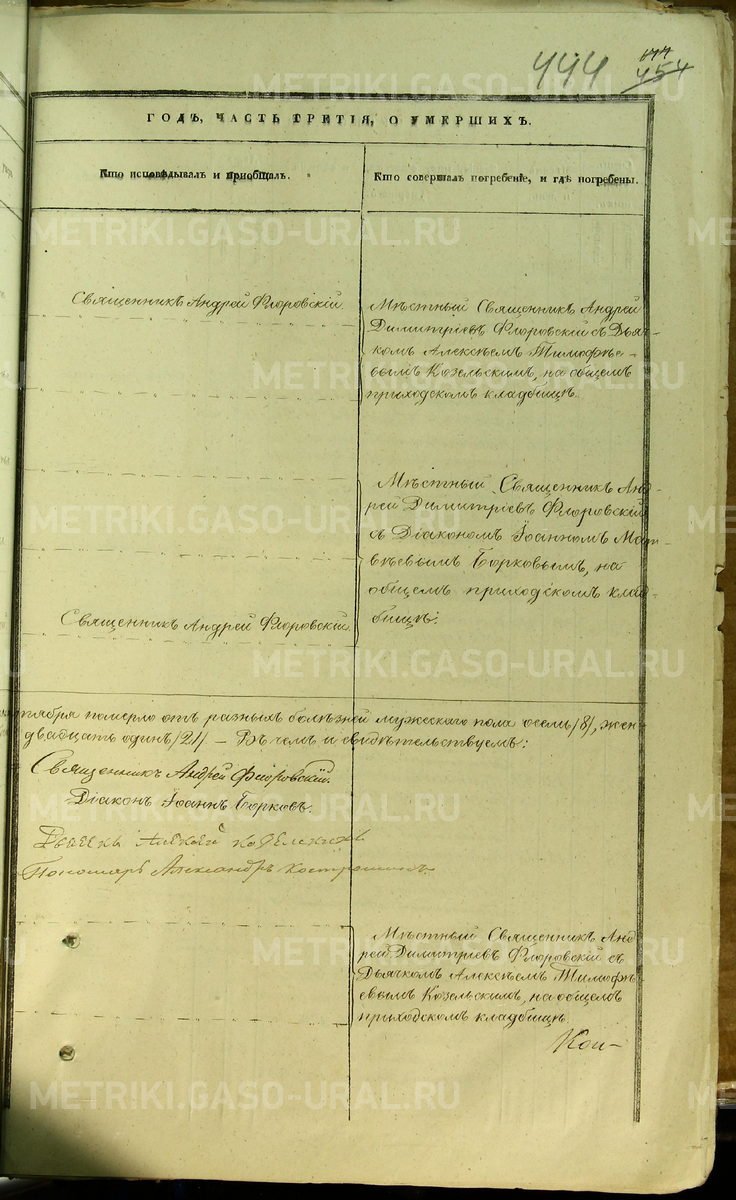 444 444
454
ГОДЪ, ЧАСТЬ ТРЕТІЯ, О УМЕРШИХЪ.
Кто исповѣдывалъ и приобщалъ.
Кто совершалъ погребеніе, и гдѣ погребены.
Священникъ Андрей Флоровскій.
Мѣстный Священникъ Андрей
Димитріевъ Флоровскій съ Дьяч-
комъ Алексѣемъ Тимофѣе-
вымъ Козельскимъ, на общемъ
приходскомъ кладбищѣ.
Мѣстный Священникъ Анд-
рей Димитріевъ Флоровскій
съ Діакономъ Іоанномъ Мат-
вѣевымъ Борковымъ, на
общемъ приходскомъ клад-
бищѣ.
Священникъ Андрей Флоровскій.
тября померло отъ разныхъ болѣзней мужескаго пола осемь /8/, жен-
двадцать одинъ /21/ — Въ чемъ и свидѣтельствуемъ:
Священникъ Андрей Флоровскій.
Діаконъ Іоаннъ Борковъ.
Алексей Козельскій
Пономарь Александръ
Мѣстный Священникъ Анд-
рей Димитріевъ Флоровскій съ
Дьячкомъ Алексѣемъ Тимофѣ-
евымъ Козельскимъ, на общемъ
приходскомъ кладбищѣ.
Кои-
METRIKI.GASO-URAL.RU